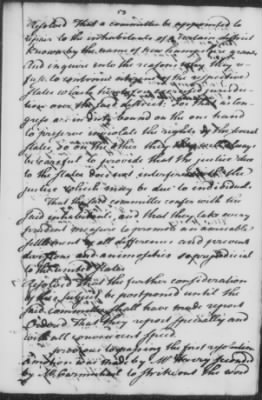 5
Resolved That a committee be appointed to
repair to the inhabitants of a certain district
known by the name of new hampshire grants
And enquire into the reasons why they re
fuse to continue citizens of the respective
States which heretofore exercised jurisdic
tion over the said district. For that as Con
gress are in duty bound on the one hand
to preserve inviolate the rights of the several
States, so on the other they will always
be careful to provide that the justice due
to the States does not interfere with the
justice which may be due to individuals.
That the said committee confer with the
said inhabitants, and that they take every
prudent measure to promote an amicable
settlement of all differences and prevent
divisions and animosities so prejudicial
to the united States
Resolved That the further consideration
of this subject be postponed until the
said committee shall have made report
Ordered that they report specially and
with all convenient speed.
previous to passing the first resolution
A motion was made by Mr seconded
by Mr Carmichael to strike out the word